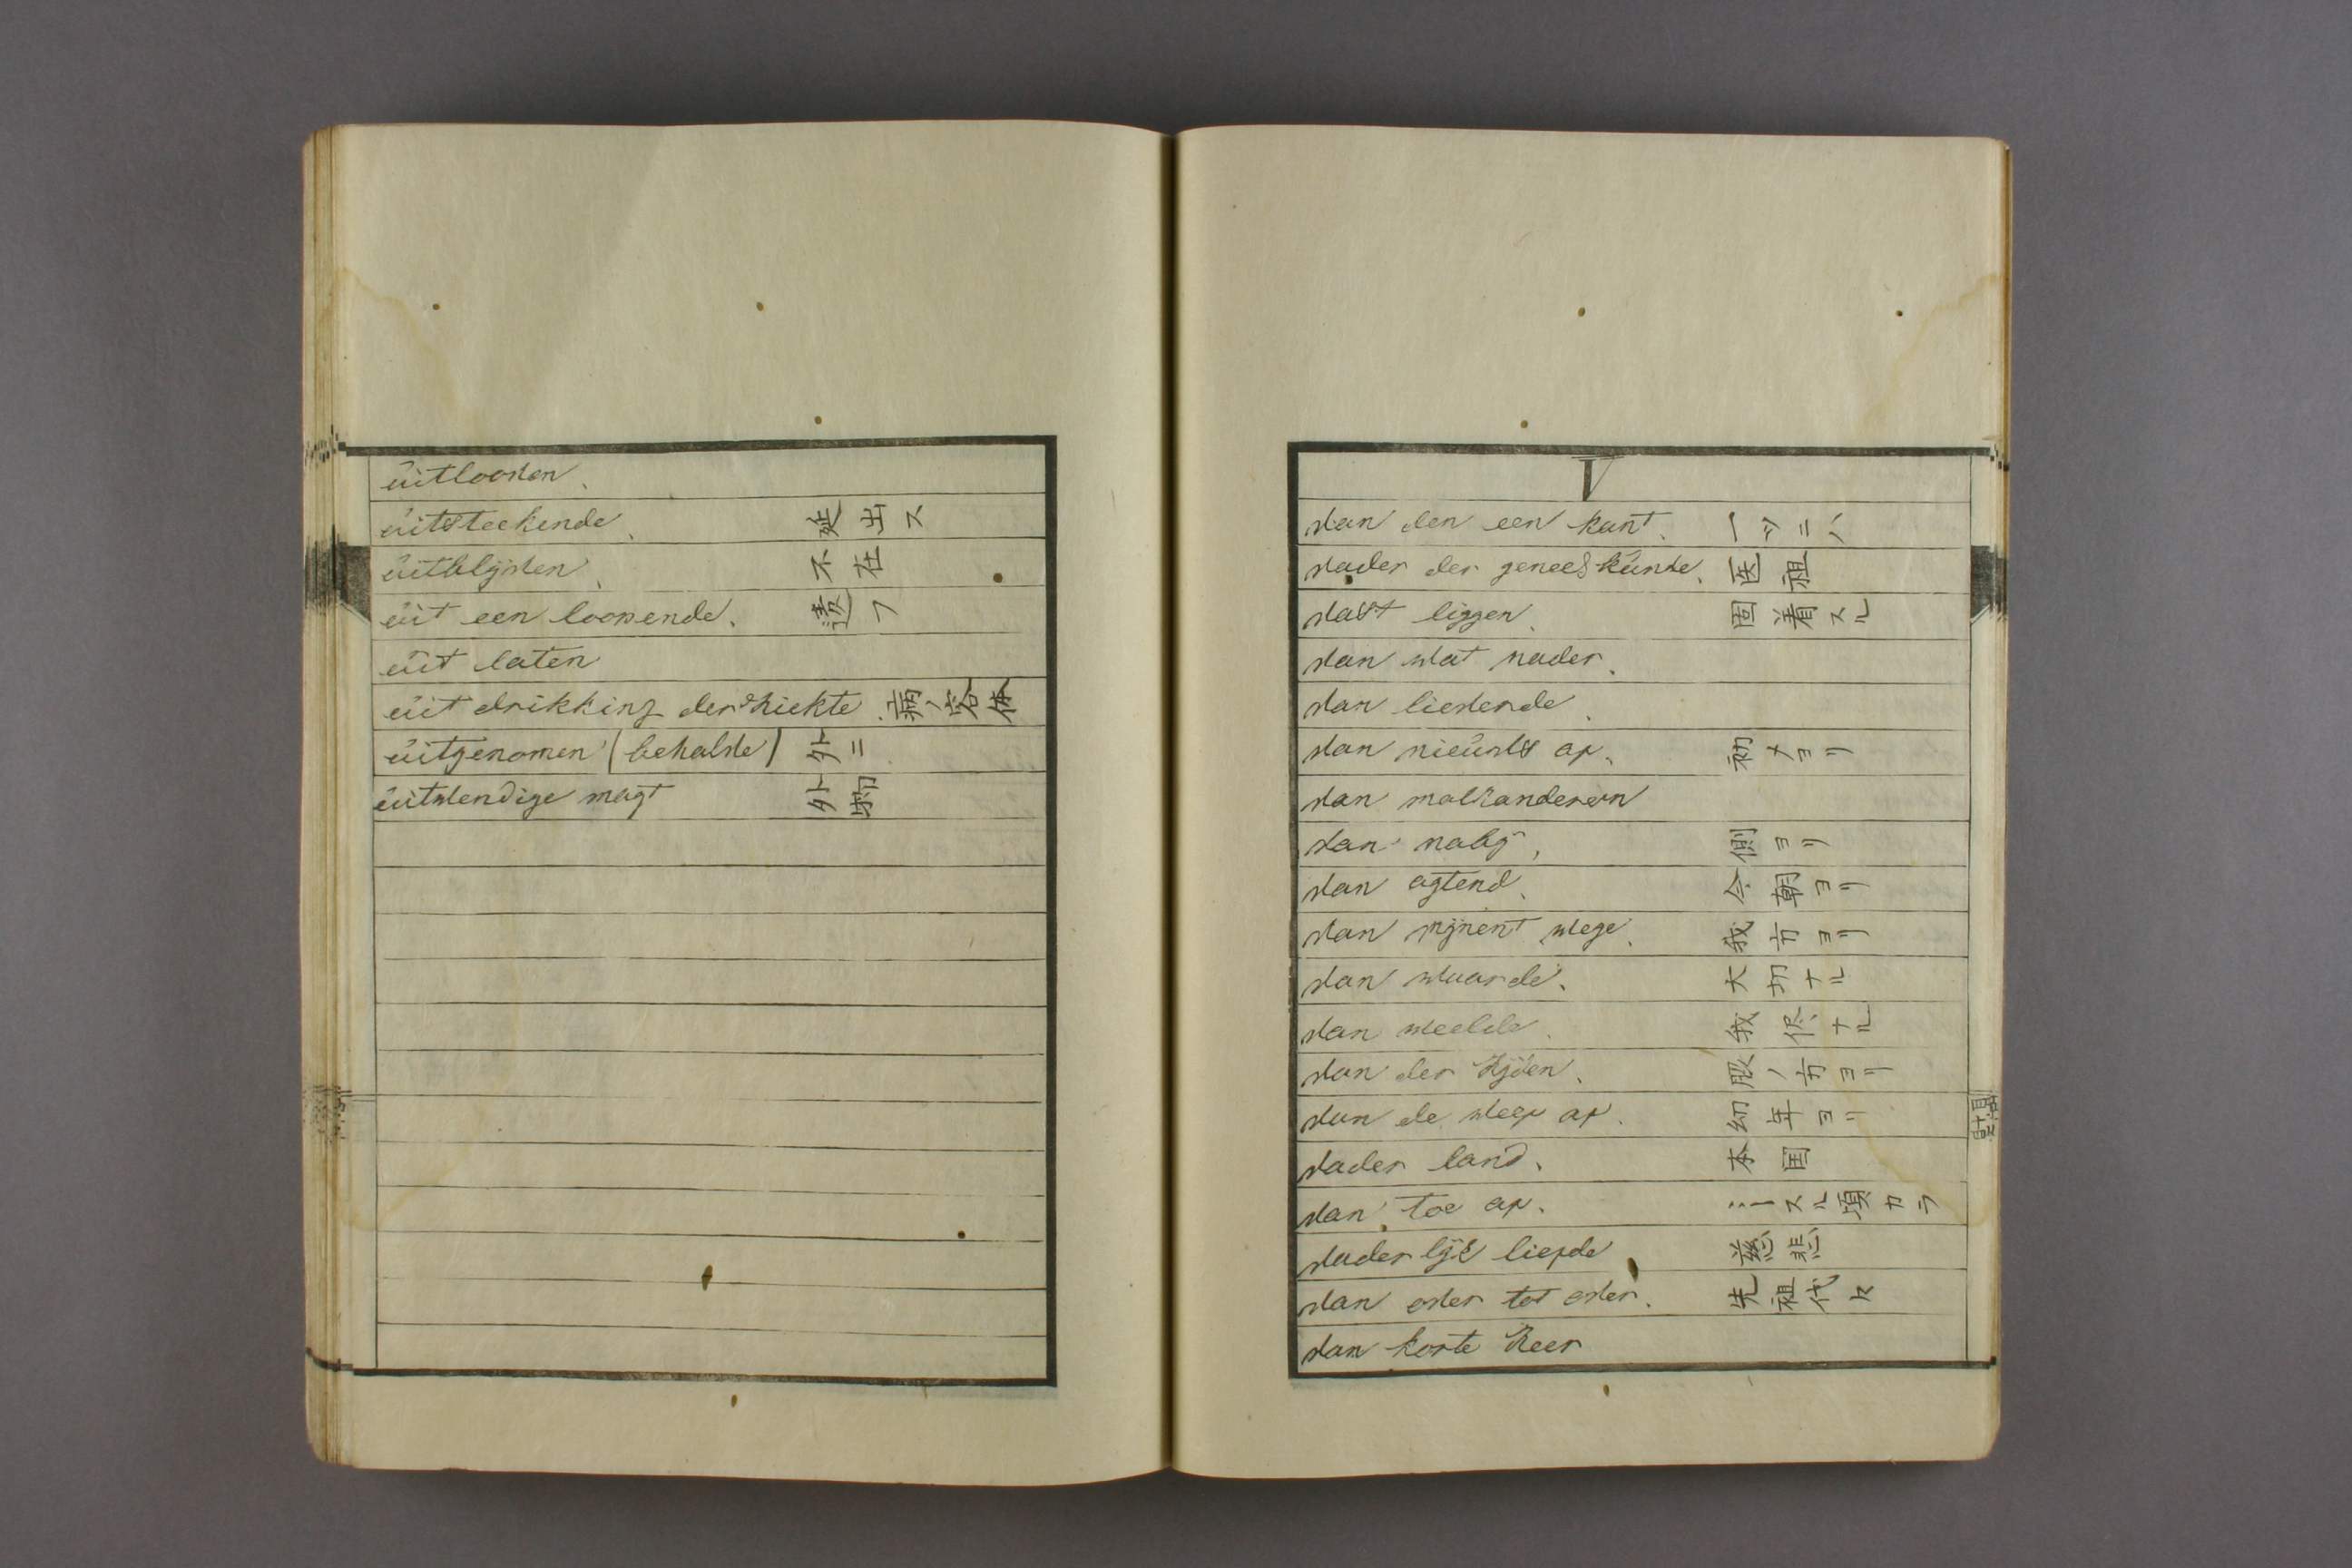 uitlooven.
uitsteekende. 延出ス
uitblyven. 不在
uit een loopende. 違フ
uit laten
uit drikking der ziekte. 病ノ容体
uitgenomen (behalve) 外ニ
uitwendige magt 外
V
van den een kant. 一ツニハ
vader der geneeskunde. 医祖
vast liggen. 固着スル
van wat nader.
van lieverde.
van nieuws ap. 初メヨリ
van malkanderen
van naby. 側ヨリ
van agtend. 今朝ヨリ
van mynent wege. 我方ヨリ
van waarde. 大切ナル
van weelde. 我侭ナル
van der zyden. ノ方ヨリ
van de weep ap. 幼年ヨリ
vader land. 本国
van toe ap. スル頃カラ
vaderlyk liepde 慈悲
van over tot over. 先祖代々
van korte keer